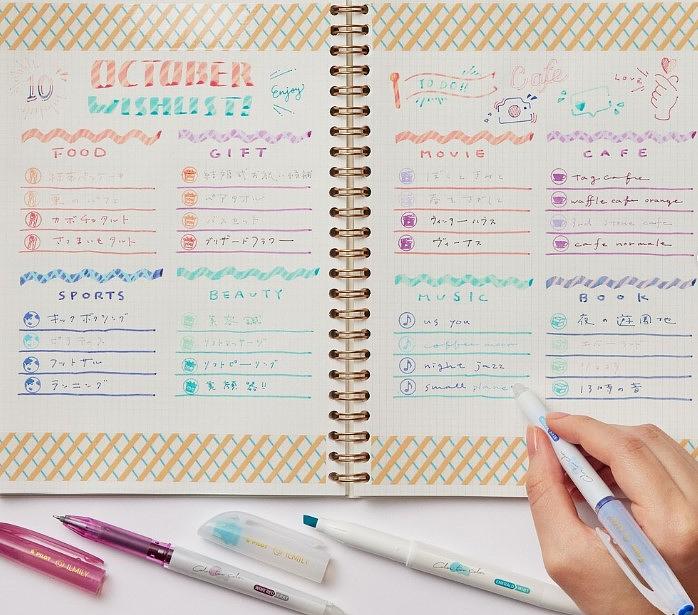 10
OCTOBER
WISHLIST!
Enjoy
FOOD
抹茶パンケーキ
栗のパフェ
カボチャタルト
さつまいもタルト
GIFT
ペアタオル
バスセット
プリザードフラワー
SPORTS
キックボクシング
ピラティス
フットサル
ランニング
BEAUTY
美容鍼
リフトマッサージ
リフトピーリング
美顔器!!
TO DO!!
Cafe
LOVE
MOVIE
ウィンターハウス
ヴィーナス
CAFE
Tag cafe
waffle cafe orange
cafe normale
MUSIC
us you
coffee moon
night jazz
small planet
BOOK
夜の遊園地
13時の音
PILOT ILMILY
PILOT ILMILY